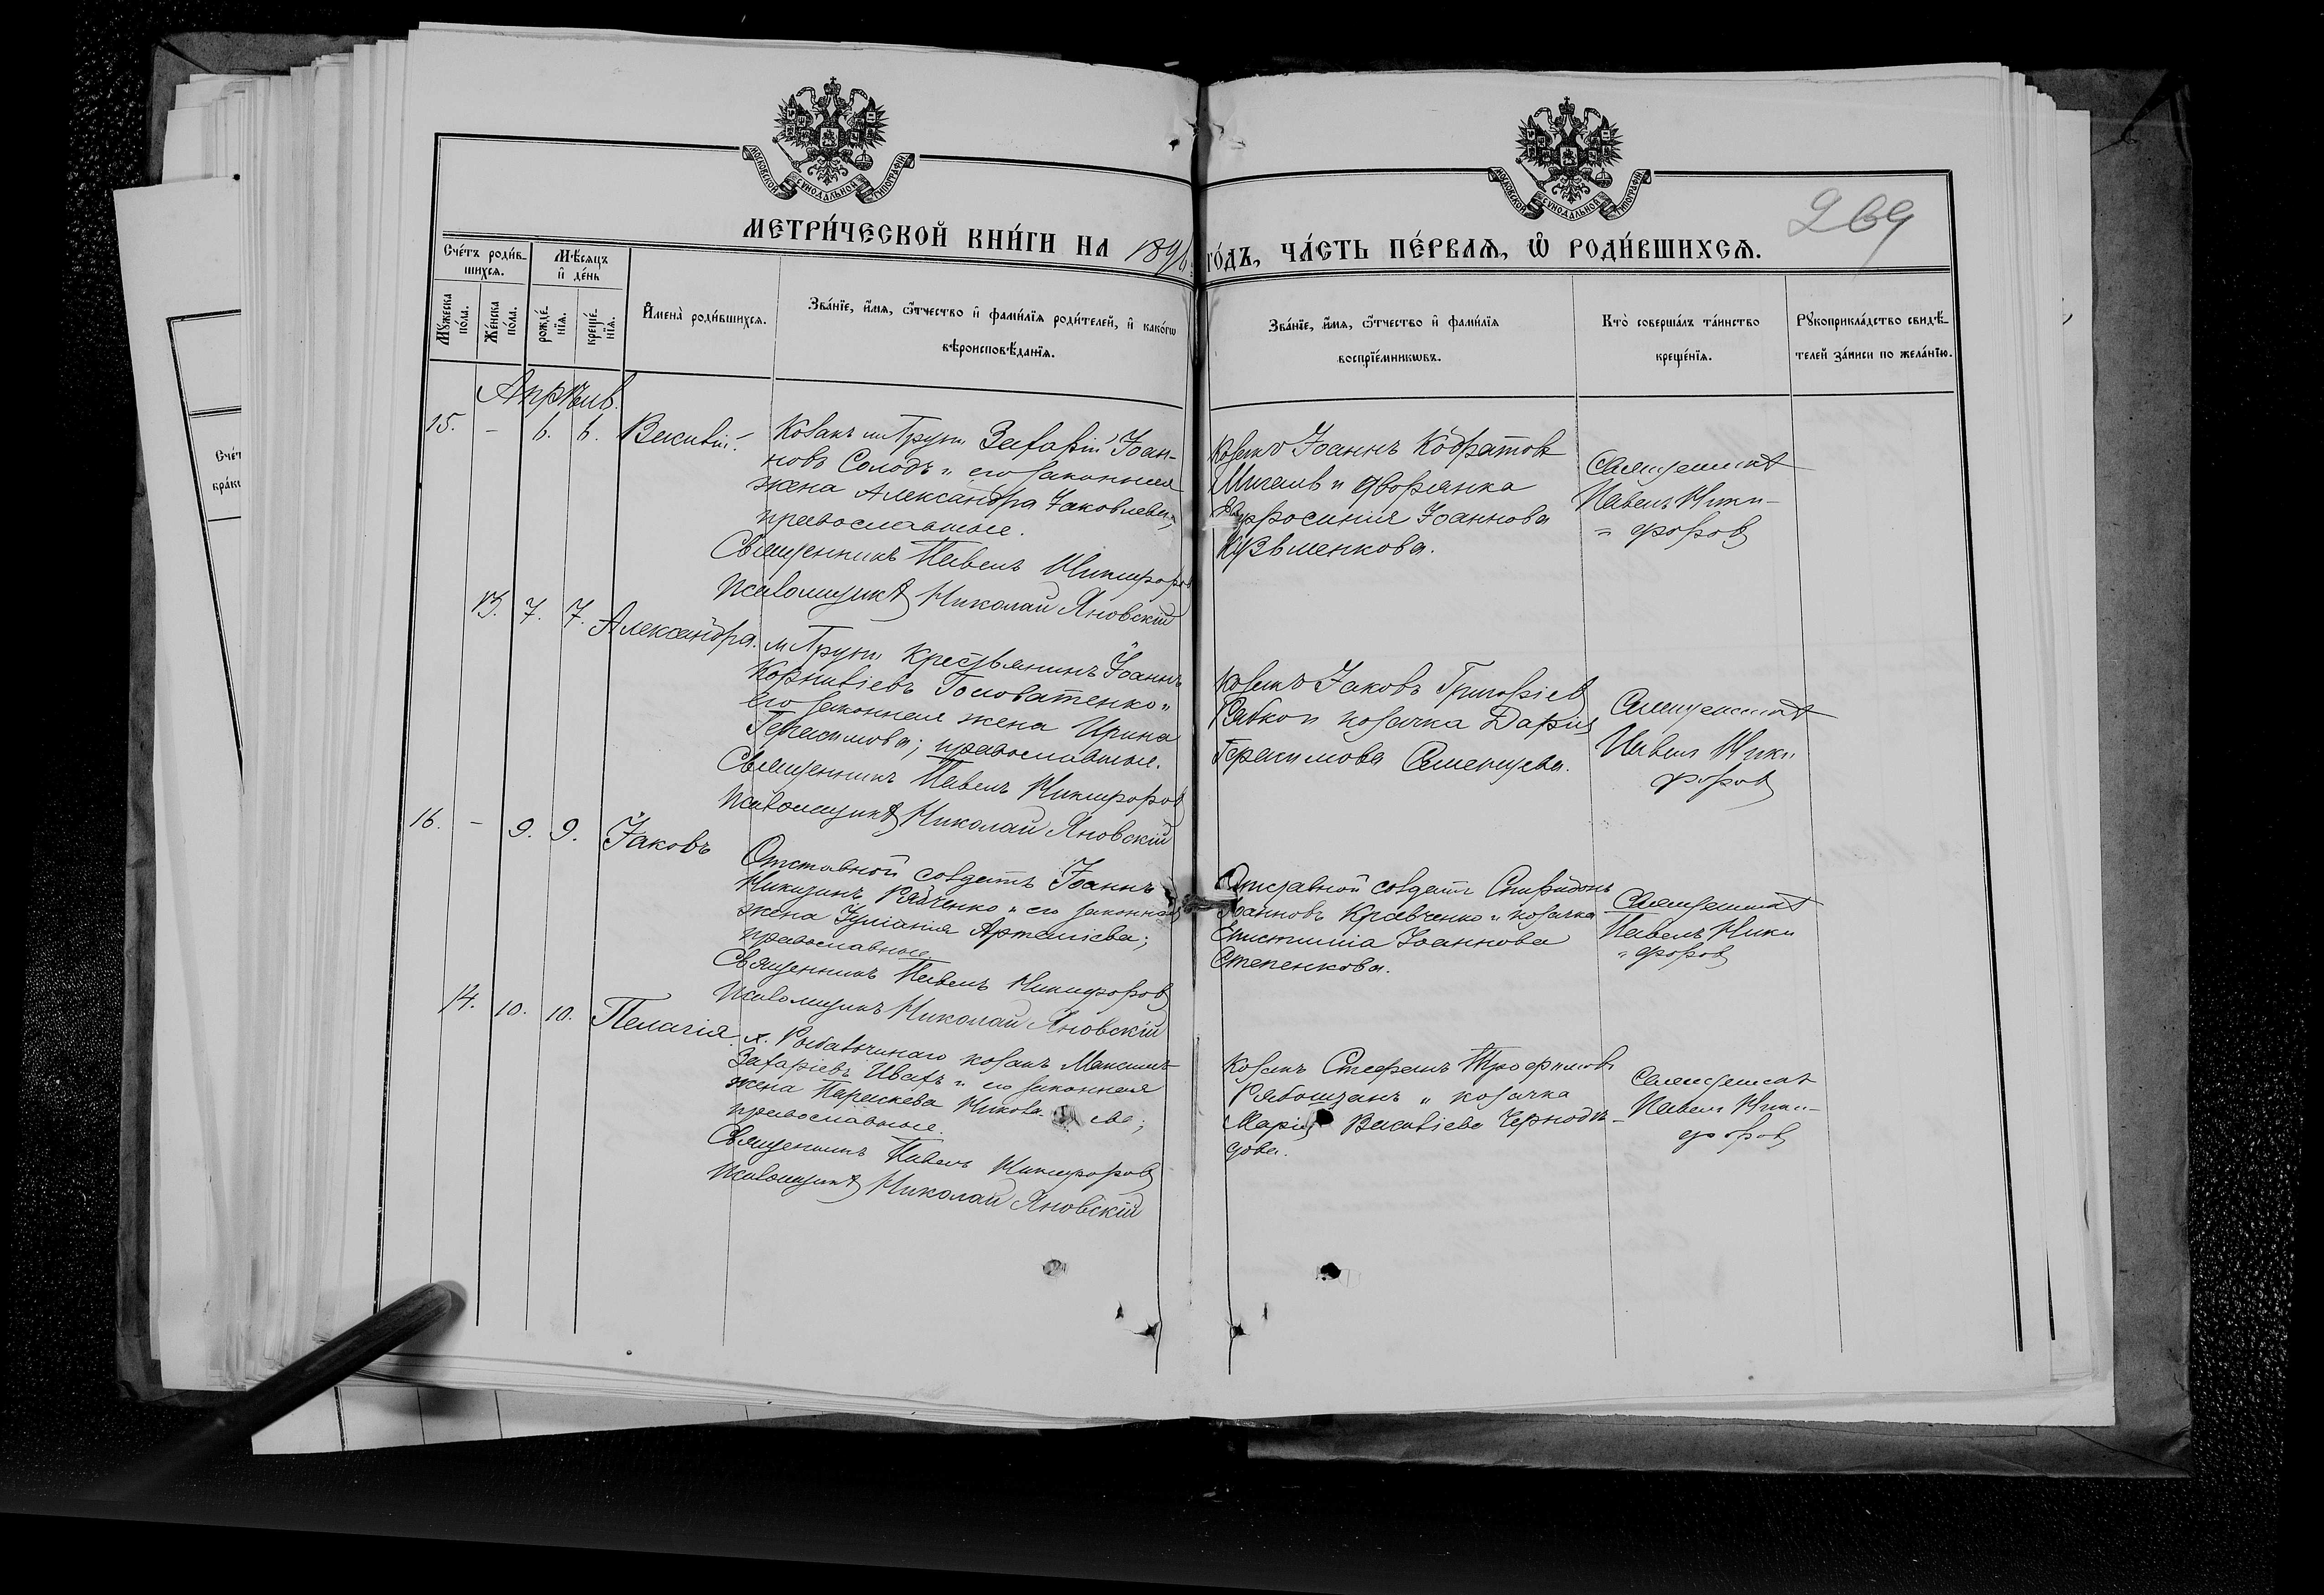 МОСКОВСКОЙ СѴНОДАЛЬНОЙ ТИПОГРАФІИ
МОСКОВСКОЙ СѴНОДАЛЬНОЙ ТИПОГРАФІИ
269
МЕТРИ́ЧЕСКОЙ КНИ́ГИ НА 1896 ГО́ДЪ, ЧА́СТЬ ПЕ́РВАѦ, Ѡ҆ РОДИ́ВШИХСѦ.
Сче́тъ роди́в-
шихсѧ.
Мѣ́сѧцъ
и҆ де́нь
Мꙋ́жеска
по́ла.
Же́нска
по́ла.
рожде́-
нїѧ.
креще́-
нїѧ.
И҆мена̀ роди́вшихсѧ.
Зва́нїе, и҆́мѧ, ѻ҆́тчество и҆ фами́лїѧ роди́телей, и҆ како́гѡ
вѣроисповѣ́данїѧ.
Зва́нїе, и҆́мѧ, ѻ҆́тчество и҆ фами́лїѧ
воспрїе́мникѡвъ.
Кто̀ соверша́лъ та́инство
креще́нїѧ.
Рꙋкоприкла́дство свидѣ́-
телей за́писи по жела́нїю.
Апрѣль.
15. - 6. 6. Василій.
Козакъ м. Груни Захарій Іоан-
новъ Солодъ и его законная
жена Александра Іаковлева;
православные.
Священникъ Павелъ Никифоровъ
Псаломщикъ Николай Яновскій
Козакъ Іоаннъ Кодратовъ
Шигаль и дворянка
Евфросинія Іоаннова
Кузьменкова.
Священникъ
Павелъ Ники-
форовъ
13. 7. 7. Александра.
м. Груни крестьянинъ Іоаннъ
Корниліевъ Головатенко и
его законная жена Ирина
Герасимова; православные.
Священникъ Павелъ Никифоровъ
Псаломщикъ Николай Яновскій
Козакъ Іаковъ Григоріевъ
Рябко и козачка Дарія
Герасимова Семенцева.
Священникъ
Павелъ Ники
форовъ
16. - 9. 9. Іаковъ
Отставной солдатъ Іоаннъ
Никитинъ Рядченко и его законная
жена Іуліанія Артеміева;
православные
Священникъ Павелъ Никифоровъ
Псаломщикъ Николай Яновскій
Отставной солдатъ Спиридонъ
Іоанновъ Кравченко и козачка
Епистимія Іоаннова
Степенкова.
Священникъ
Павелъ Ники
форовъ
14. 10. 10. Пелагія.
х. Рыбальчинаго козакъ Максимъ
Захаріевъ Ивахъ и его законная
жена Параскева
православные.
Священникъ Павелъ Никифоровъ
Псаломщикъ Николай Яновскій
Козакъ Стефанъ Трофимовъ
Рябошапъ и козачка
Марія Василіева Чернодѣ-
дова.
Священникъ
Павелъ Ники-
форовъ